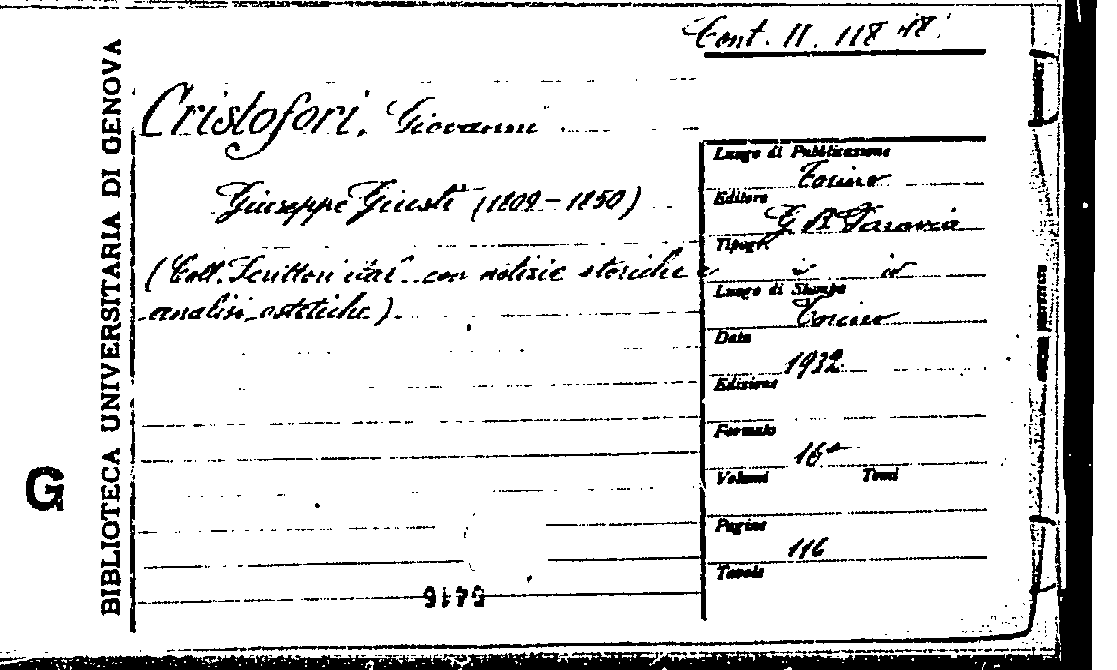 Cont. 11. 118 48.
BIBLIOTECA UNIVERSITARIA DI GENOVA
G
Cristofori, Giovanni
Giuseppe Giusti (1809 - 1850)
(Coll. Scrittori ital. con notizie storiche e
analisi estetiche).
Luogo di Pubblicazione
Torino
Editore
G. B. Paravia
Tipogr.
Luogo di Stampa
Torino
Data
1932
Edizione
Formato
16°
Volumi Tomi
Pagine
116
Tavole